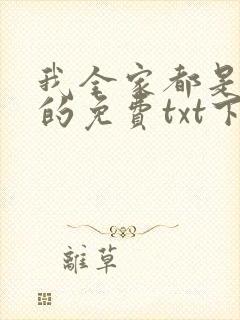 我全家都是
的免费txt下
離草